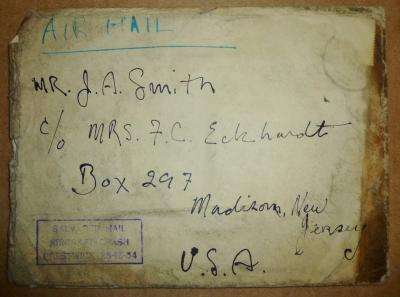 AIR MAIL
MR. J.A. Smith
c/o MRS. F.C. Eckhardt
Box 297
Madison, New
Jersey
U.S.A.
SALVAGED MAIL
AIRCRAFT CRASH
PRESTWICK 25-12-54